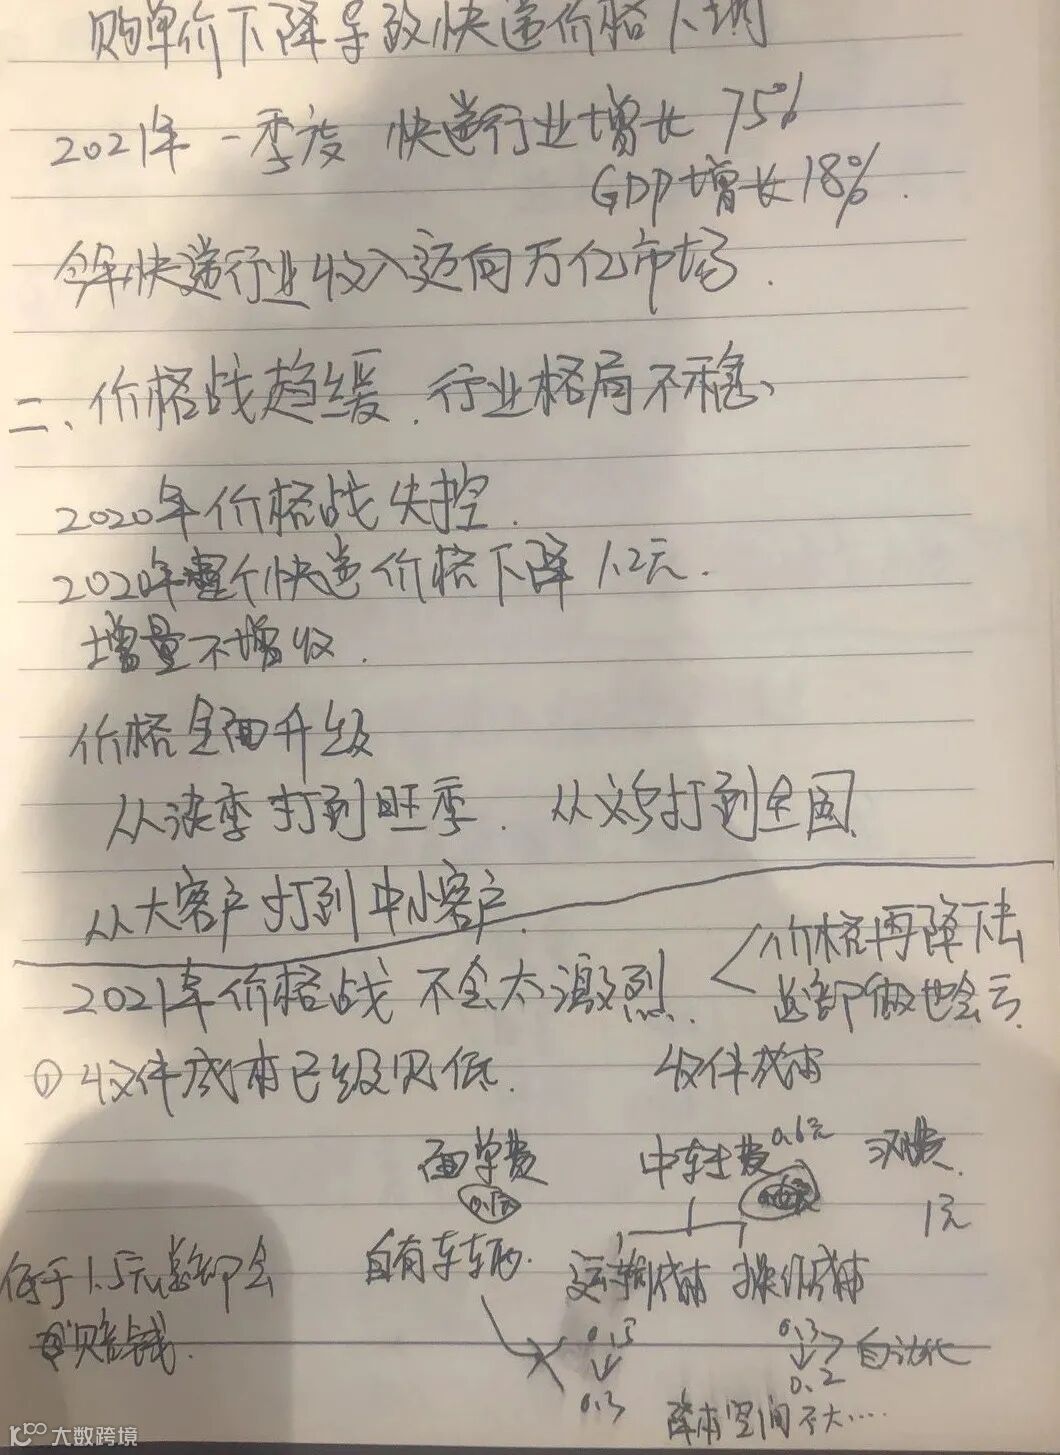 购单价下降导致快递价格下调
2021年一季度 快递行业增长 75%
GDP增长18%.
今年快递行业收入迈向万亿市场.
二、价格战趋缓.行业格局不稳、
2020年价格战失控.
2020年整个快递价格下降1.2元.
增量不增收.
价格全面升级
从淡季打到旺季. 从义乌打到全国.
从大客户打到中小客户.
2021年价格战不会太激烈. <价格再降下去
总部做也会亏.
①收件成本已经见低. 收件成本
面单费 中转费 0.6元 派费.
1元
自有车辆. 运输成本 操作成本
低于1.5元总部会
赔钱.
0.3 自动化
0.3 0.2
降本空间不大....
大数跨境